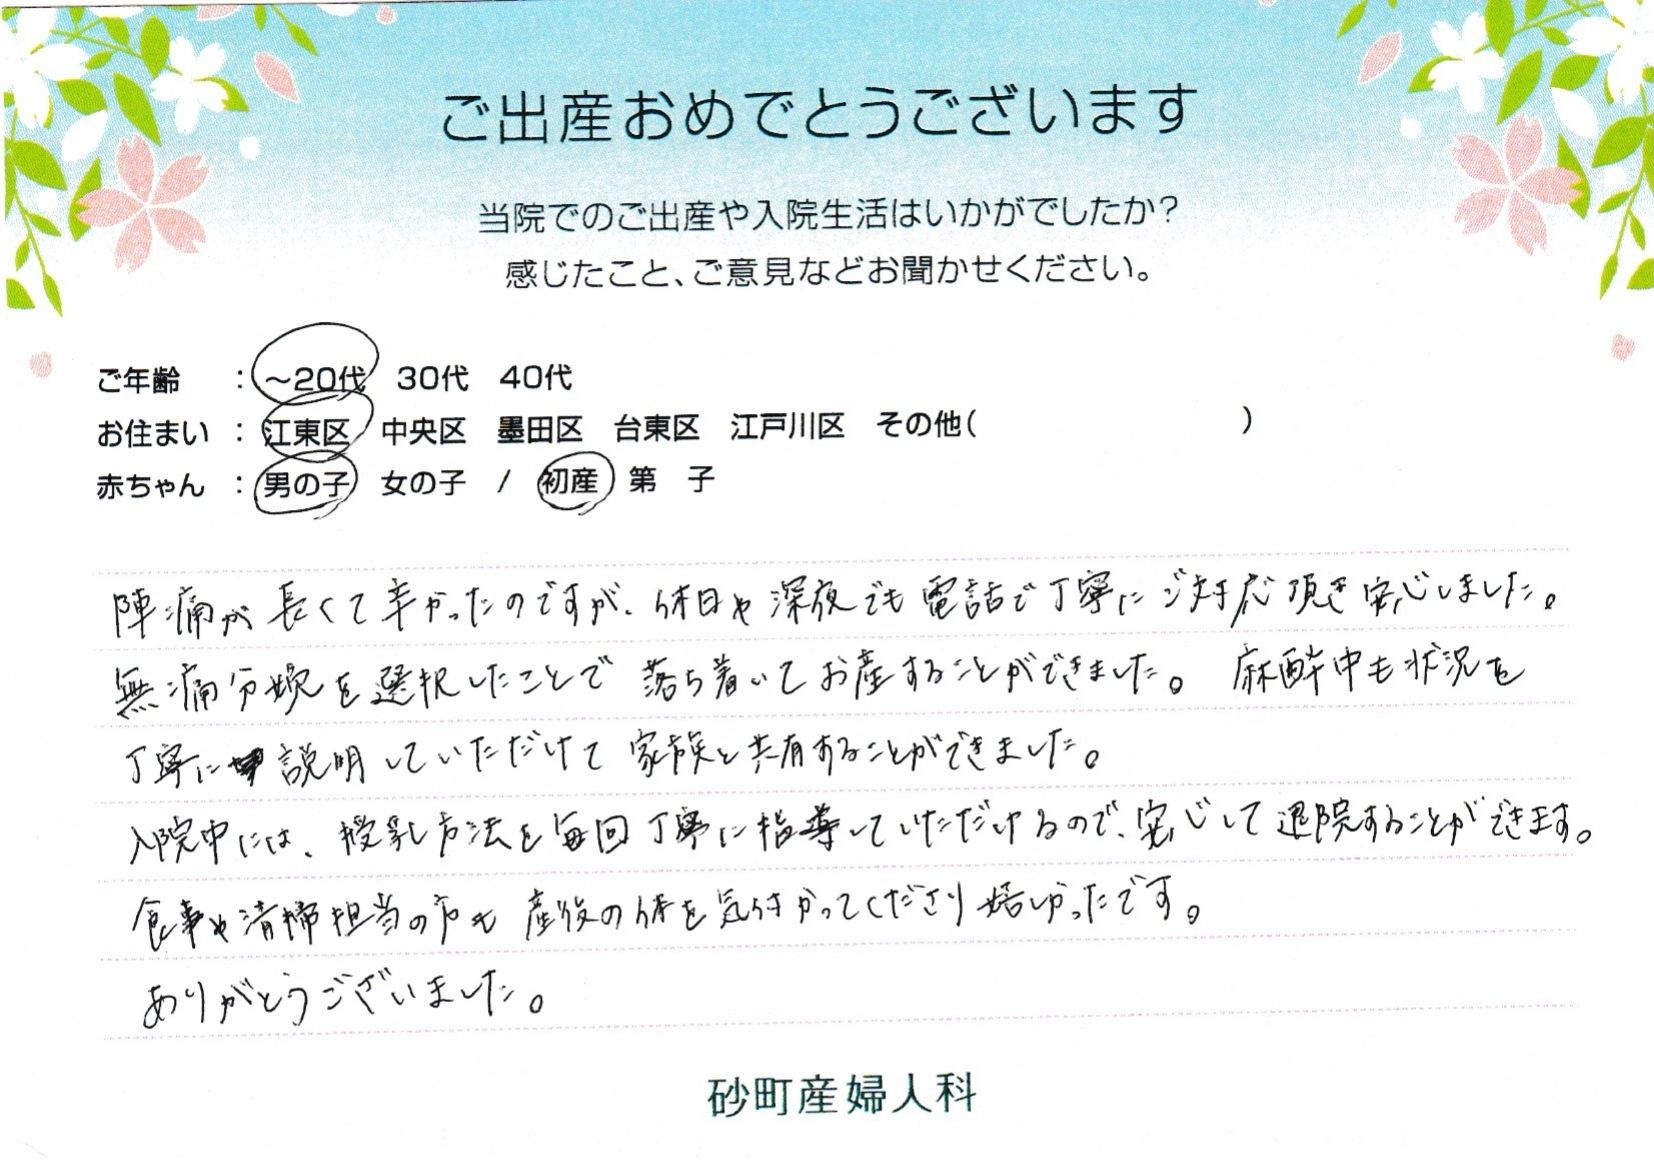 ご出産おめでとうございます
当院でのご出産や入院生活はいかがでしたか?
感じたこと、ご意見などお聞かせください。
ご年齢 : ～20代 30代 40代
お住まい : 江東区 中央区 墨田区 台東区 江戸川区 その他( )
赤ちゃん : 男の子 女の子 / 初産 第 子
陣痛が長くて辛かったのですが、休日や深夜でも電話で丁寧にご対応頂き安心しました。
無痛分娩を選択したことで落ち着いてお産することができました。 麻酔中も状況を
丁寧に説明していただけて家族と共有することができました。
入院中には、授乳方法を毎回丁寧に指導していただけるので、安心して退院することができます。
食事や清掃担当の方も産後の体を気付かってくださり嬉しかったです。
ありがとうございました。
砂町産婦人科